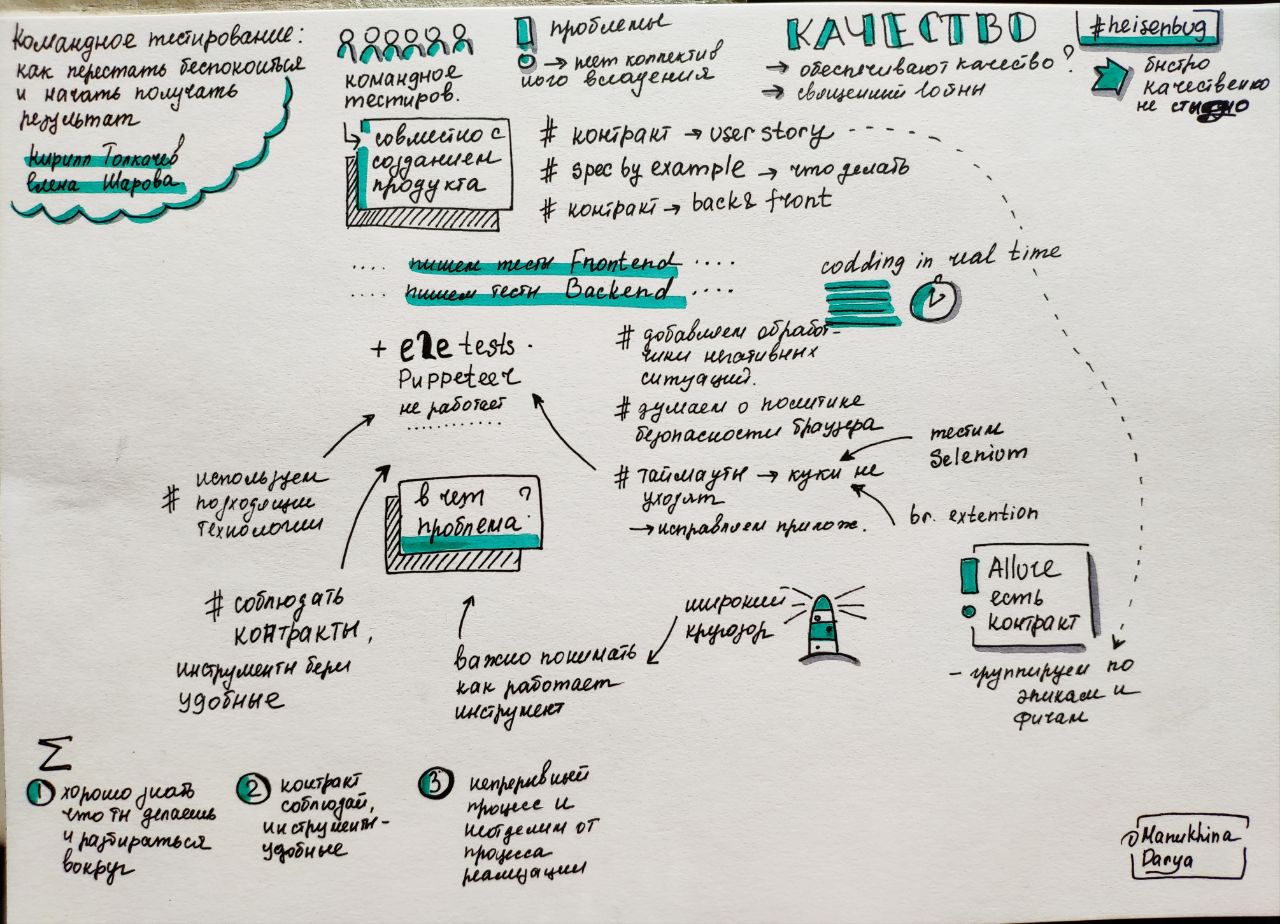 Командное тестирование:
как перестать беспокоиться
и начать получать
результат
Кирилл Толкачев
Елена Шарова
командное
тестиров.
совместно с
созданием
продукта
проблемы
→ нет коллектив
ного владения
КАЧЕСТВО
→ обеспечивают качество?
→ священные войны
#heisenbug
быстро
качественно
не стыдно
# контракт → user story
# spec by example → что делать
# контракт → back & front
.... пишем тесты Frontend ....
.... пишем тесты Backend ....
codding in real time
+ e2e tests.
Puppeteer
не работает
# добавляем обработ-
чики негативных
ситуаций.
# думаем о политике
безопасности браузера
# таймауты → куки не
уходят
→ исправляем прилож.
тестим
Selenium
br. extention
# используем
подходящии
технологии
в чем ?
проблема
# соблюдать
контракты,
инструменты бери
удобные
важно понимать
как работает
инструмент
широкий
кругозор
Allure
есть
контракт
– группируем по
эпикам и
фичам
Σ
1 хорошо знать
что ты делаешь
и разбираться
вокруг
2 контракт
соблюдай,
инструменты-
удобные
3 непрерывный
процесс и
неотделим от
процесса
реализации
Manukhina
Darya